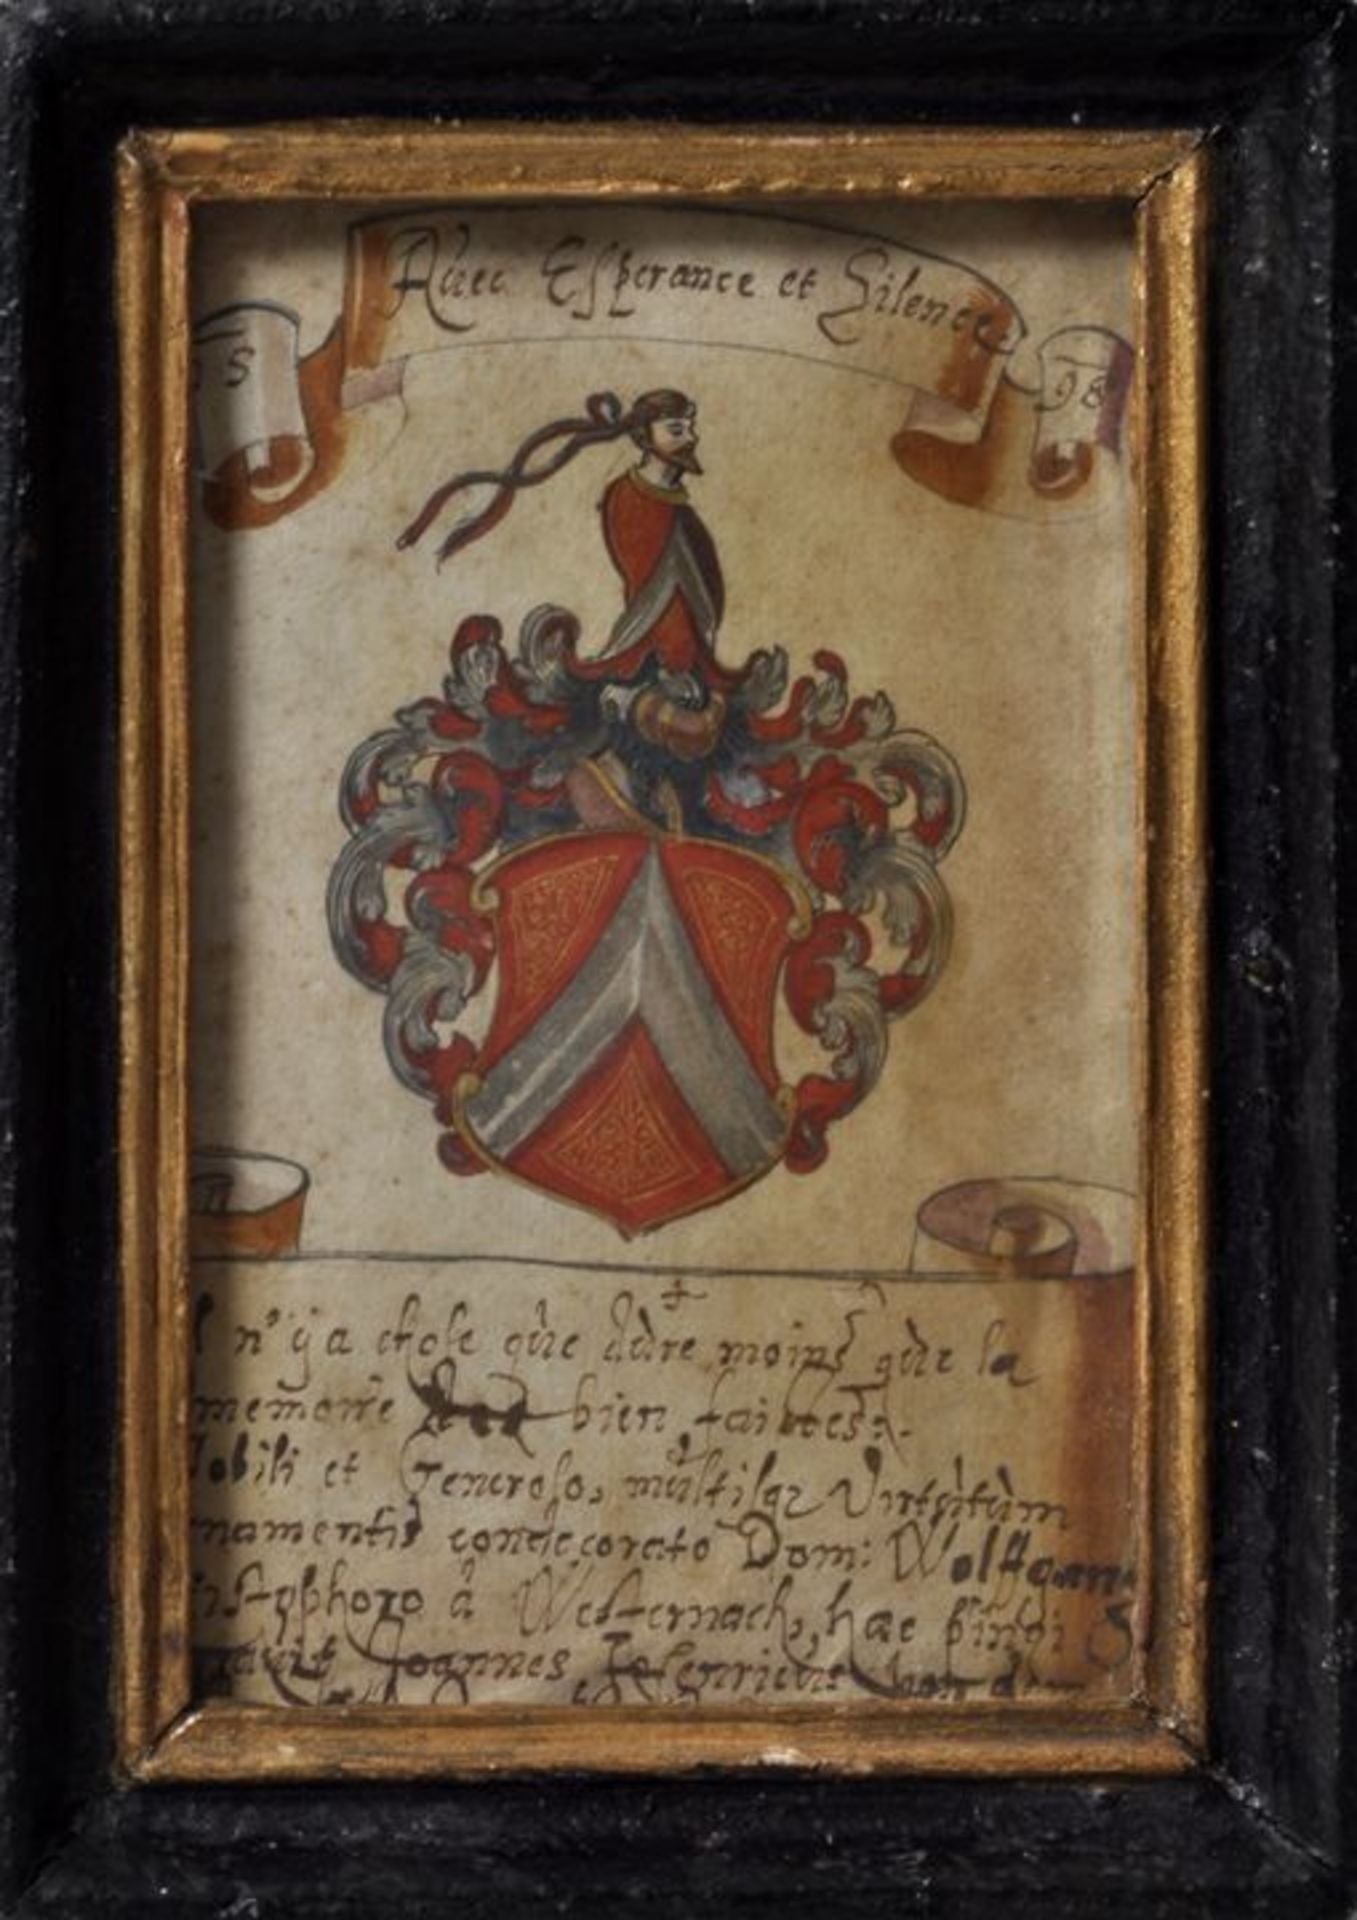 Auec Esperance et Silence.
15 98
l n'ÿ a chose que dure moins que la
memorie des bien faictes.
Nobili et Generoso, multisq₃ Virtutum
namentis condecorato Dom: Wolffgan
istophoro à Westernach, hæc pingi
Joannes